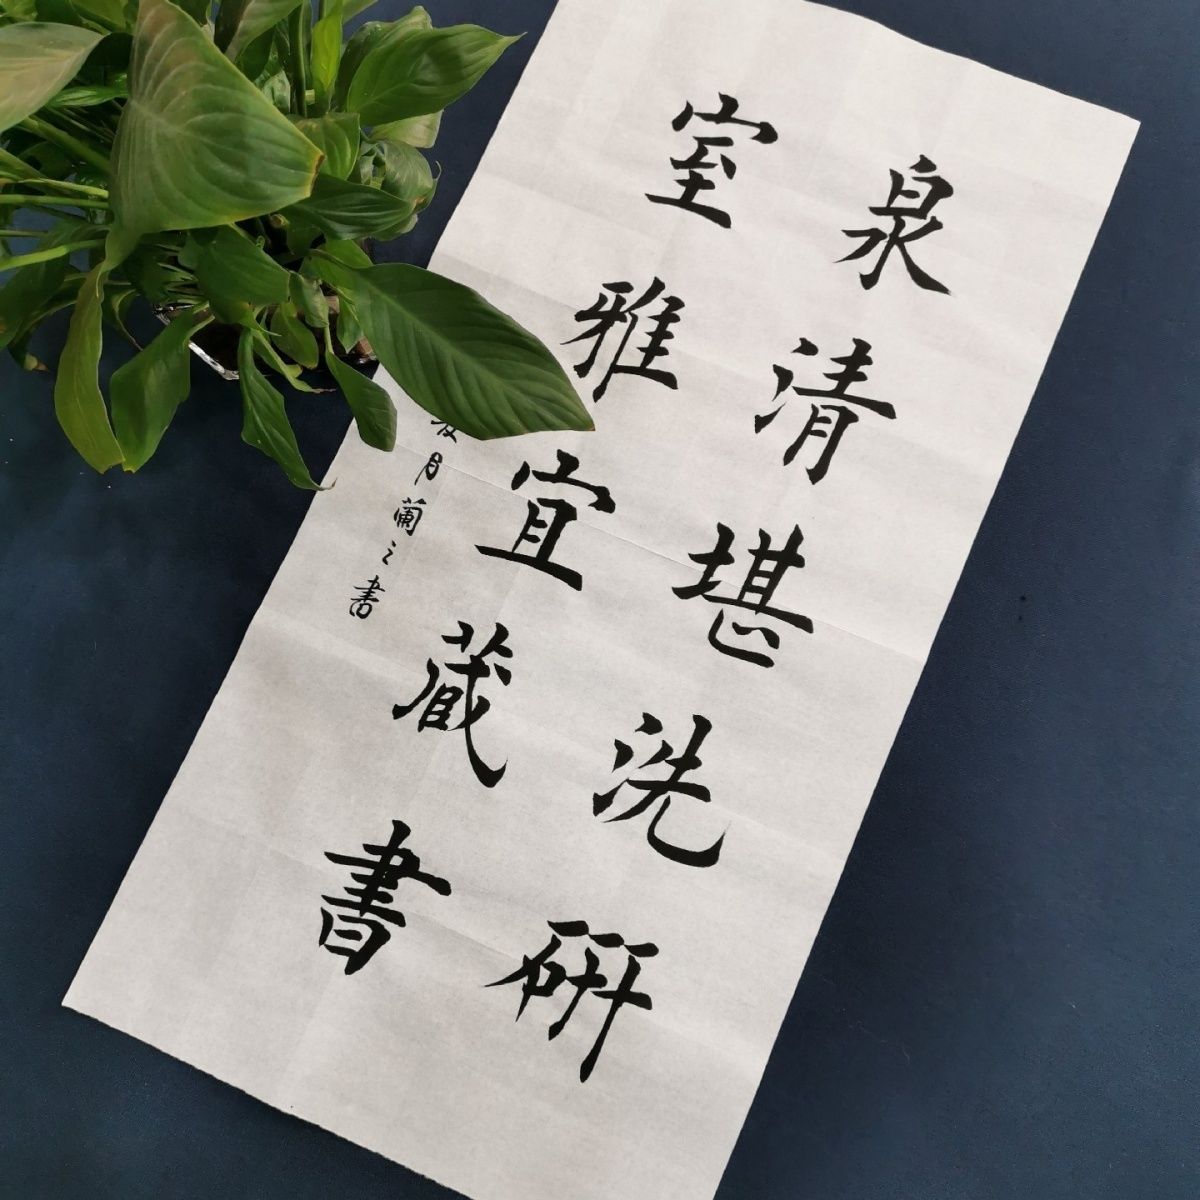 泉清堪洗研
室雅宜藏書
夏月蘭之書